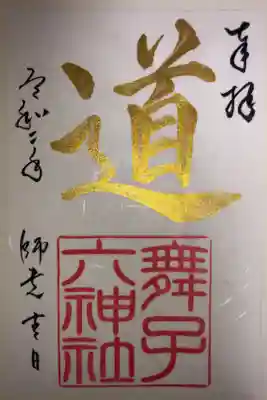 奉拝
道
舞子
六神社
令和二年 師走吉日